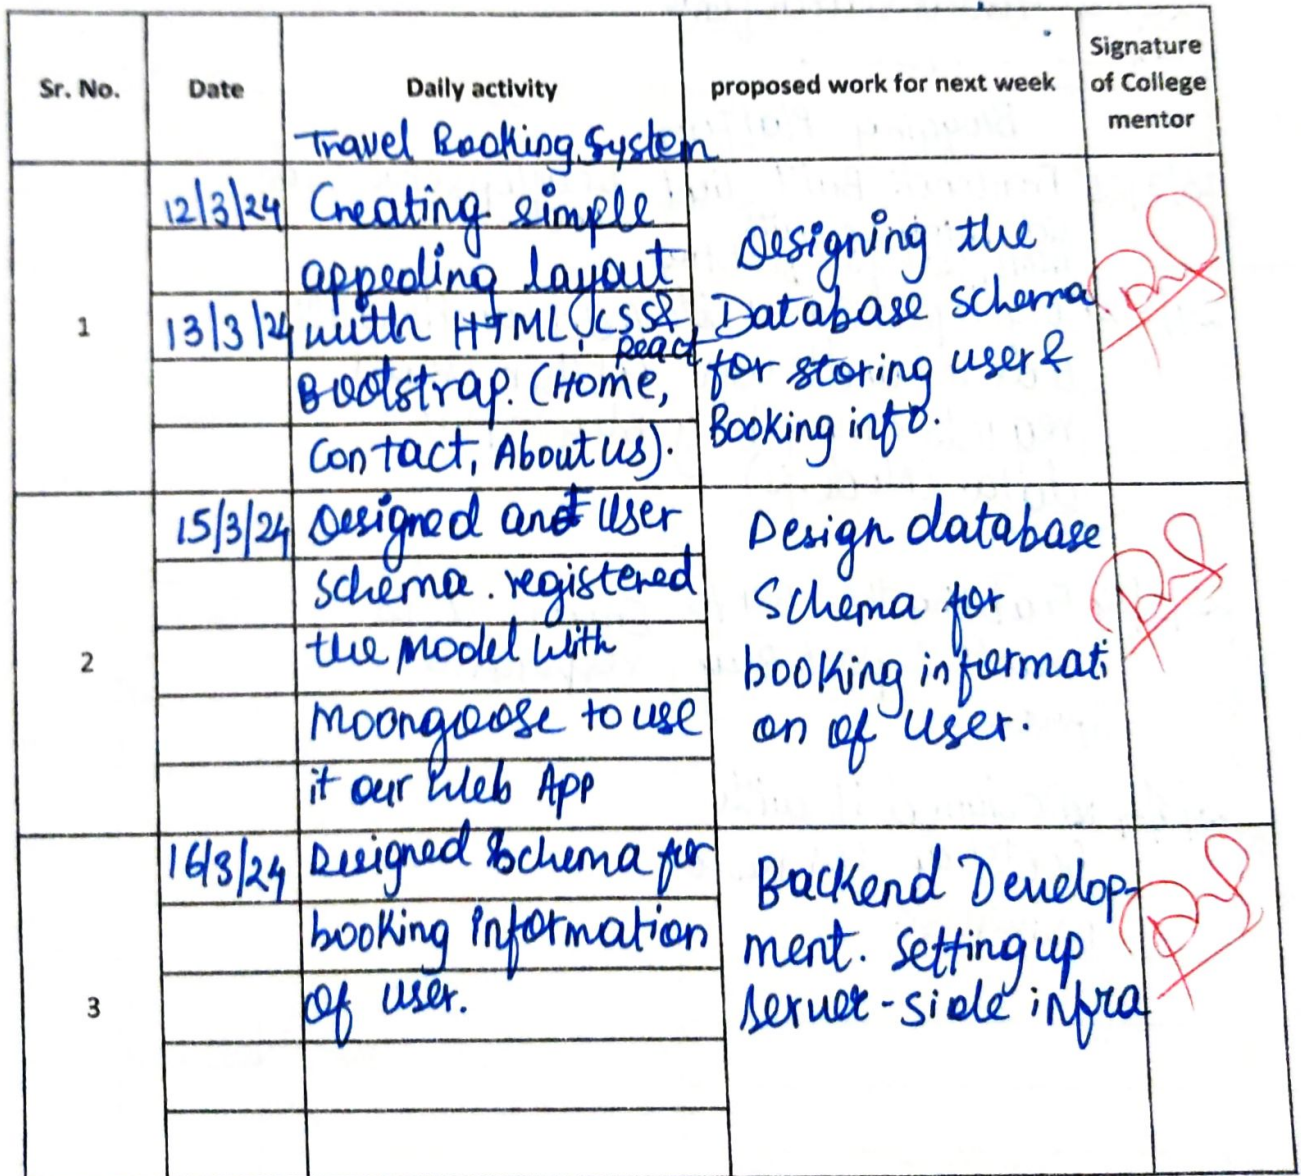 Sr. No. Date Daily activity proposed work for next week Signature of College mentor
Travel Booking System
1
12/3/24 Creating simple
appealing layout
13/3/24 with HTML, CSS &
React,
Bootstrap. (Home,
Contact, About us).
Designing the
Database schema
for storing user &
Booking info.
2
15/3/24 Designed and User
schema. registered
the model with
Moongoose to use
it our Web App
Design database
Schema for
booking informati
on of user.
3
16/3/24 Designed Schema for
booking information
of user.
Backend Develop-
ment. Setting up
server-side infra